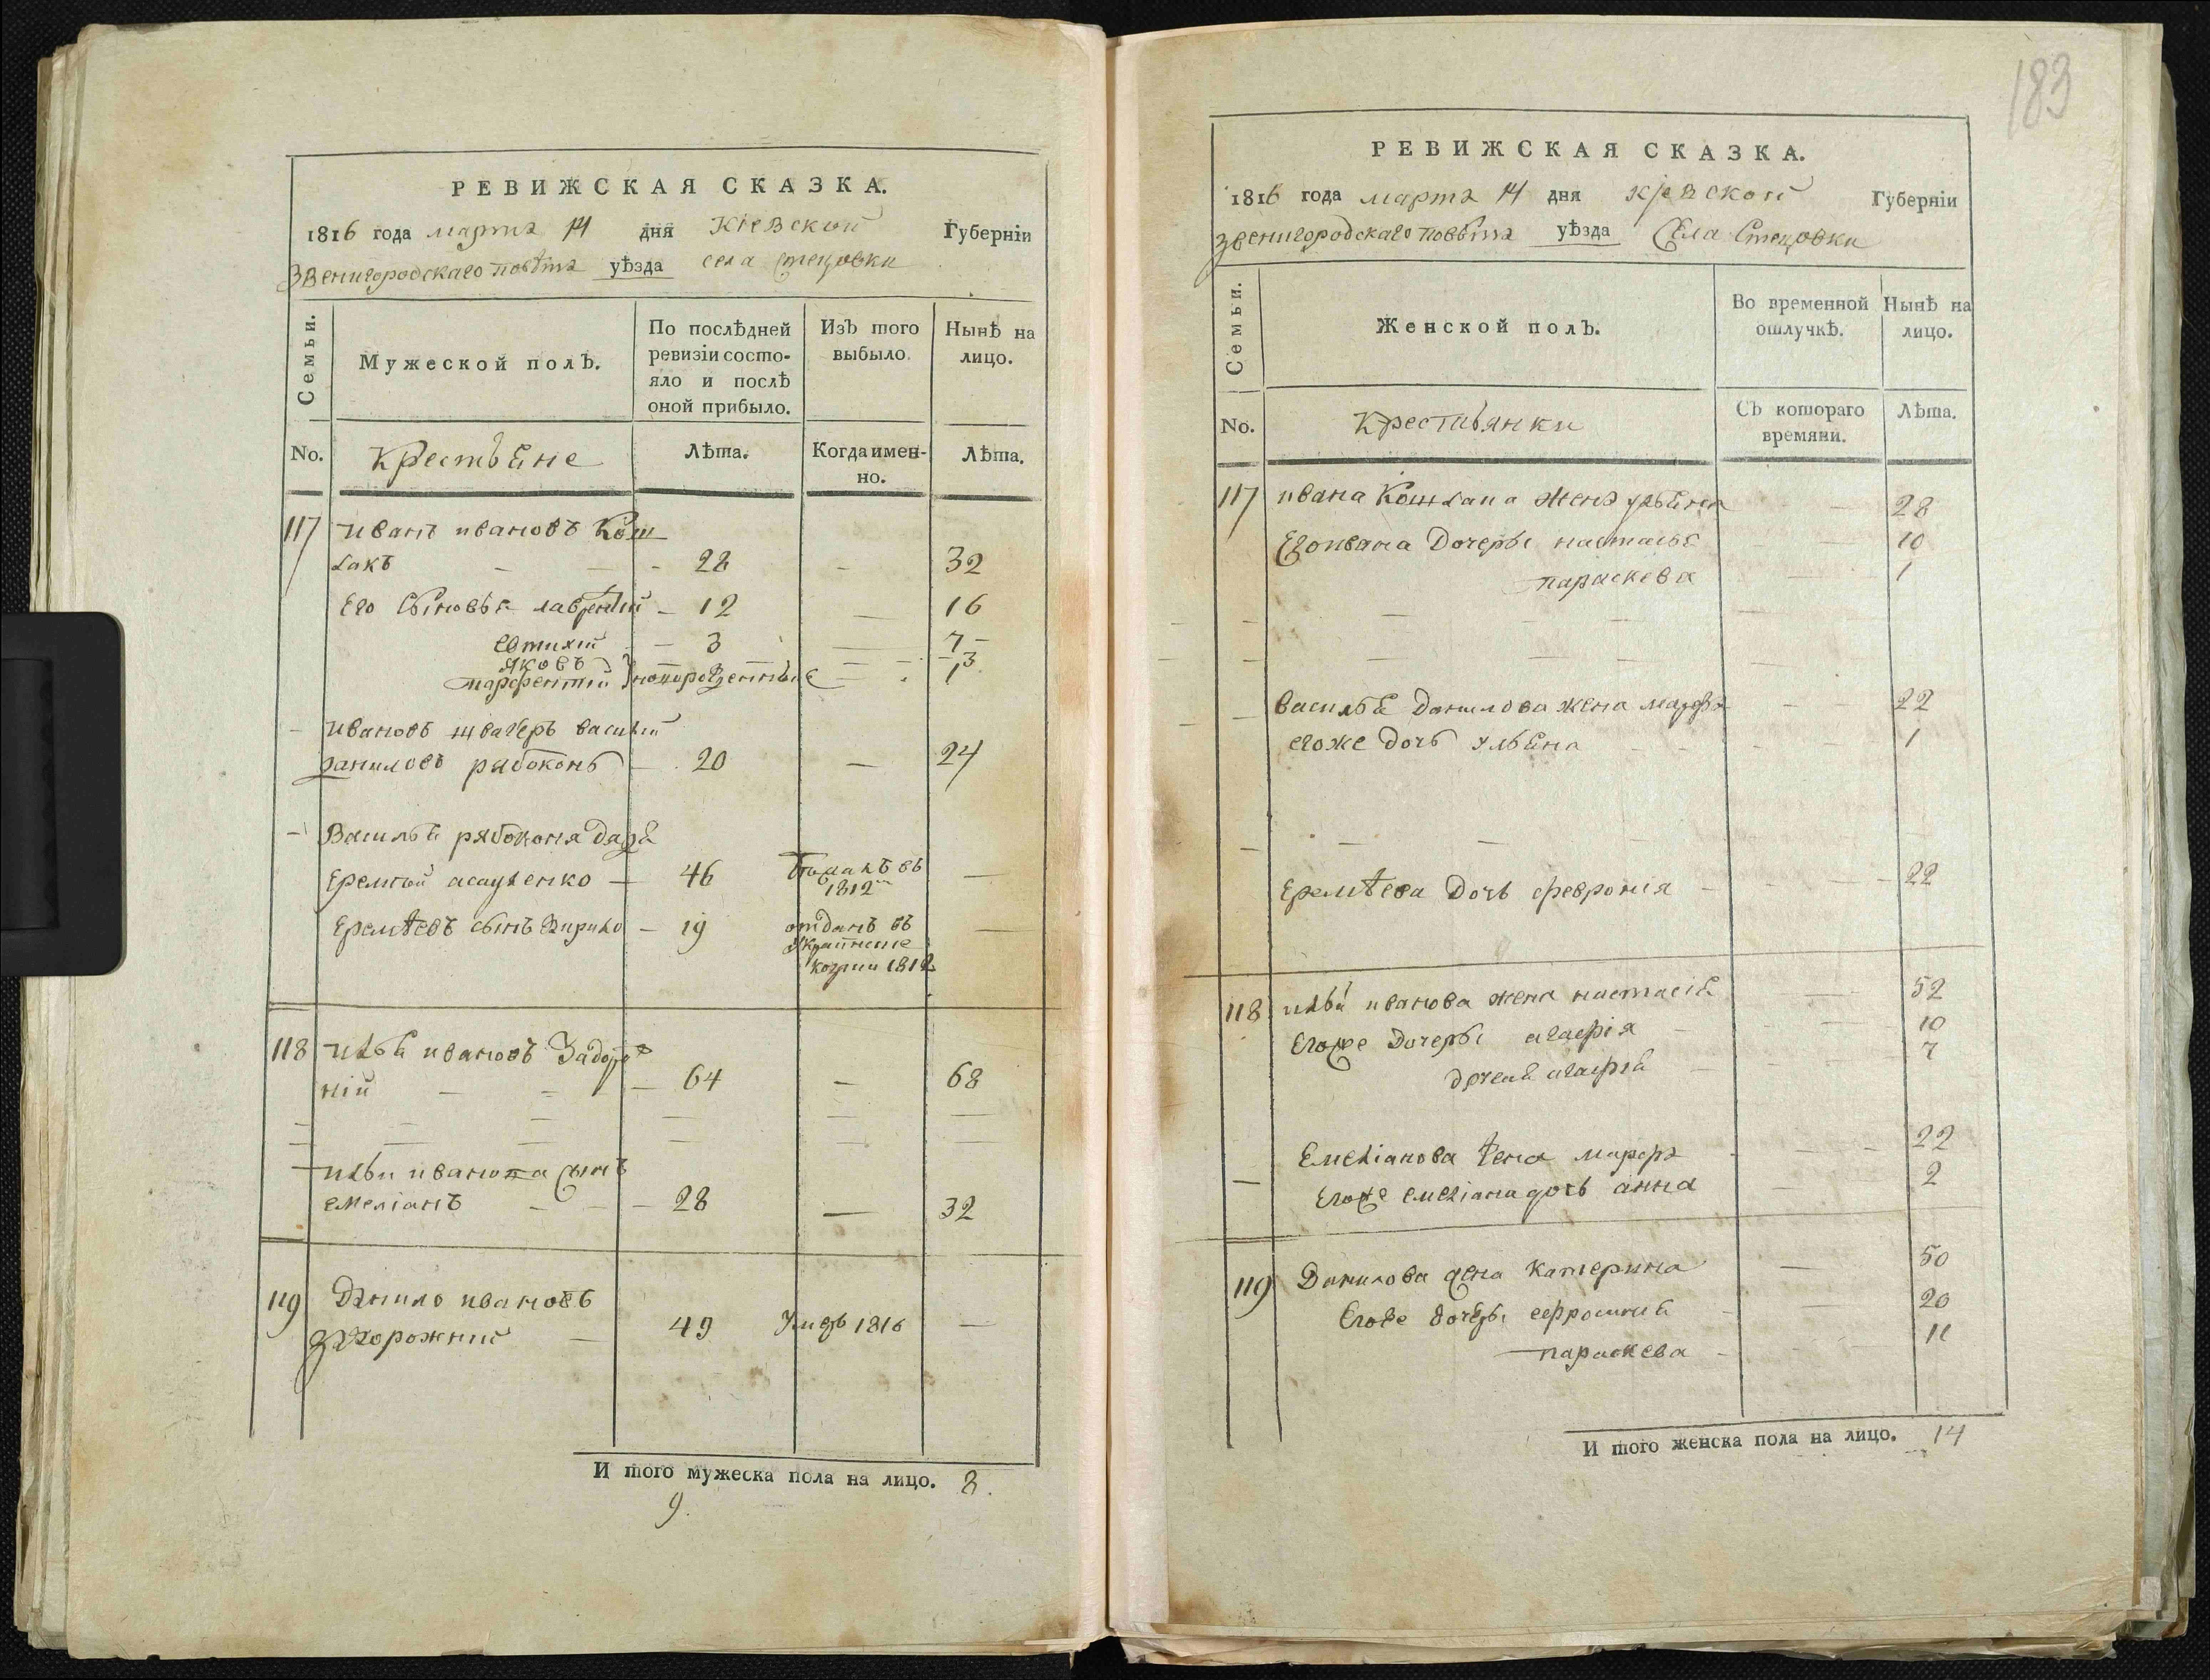 РЕВИЖСКАЯ СКАЗКА.
1816 года марта 14 дня Кіевской Губерніи
Звенигородскаго повѣта уѣзда села Стецовки
Семьи.
Мужеской полЪ.
По послѣдней ревизіи состояло и послѣ оной прибыло.
ИзЪ того выбыло.
Нынѣ на лицо.
No.
Крестьяне
Лѣта.
Когда именно.
Лѣта.
117 иванъ ивановъ Кош
лакъ - - - 28 - 32
Его Сыновья лаврентий - 12 — 16
Евтихий — 3 — 7 -
Яковъ — — 3
парфентий } новорожденные — 1
- Ивановъ швагеръ василий
Даниловъ рябоконь — 20 — 24
- Василья рябоконя дядя
Еремѣй — 46 въ 1812 —
Еремѣевъ сынъ — 19 отданъ въ
козаки 1812 —
118 илья ивановъ Задорож
ній - - - 64 — 68
- ильи иванова сынъ
емеліанъ - - - 28 — 32
119 Данило ивановъ
задорожний — 49 Умеръ 1816 —
И того мужеска пола на лицо. 8.
9.
183
РЕВИЖСКАЯ СКАЗКА.
1816 года марта 14 дня кіевской Губерніи
звенигородскаго повѣта уѣзда Села Стецовки
Семьи.
Женской полЪ.
Во временной отлучкѣ.
Нынѣ на лицо.
No.
Крестьянки
СЪ котораго времяни.
Лѣта.
117 ивана Кошлака жена ульяна — 28
Его ивана Дочеры насталья — 10
параскева — 1
- Василья Данилова жена марфа - - 22
егоже дочь ульяна - - 1
Еремѣева Дочь феврония - - - 22
118 ильи иванова жена настасія — 52
Егоже Дочеры агафія - - 10
другая агафія - - 7
Емеліанова жена марфа - - - 22
— Егоже емеліана дочь анна — 2
119 Данилова жена Катерина — 50
Егоже дочеры ефросиния - — 20
параскева - - 11
И того женска пола на лицо. 14